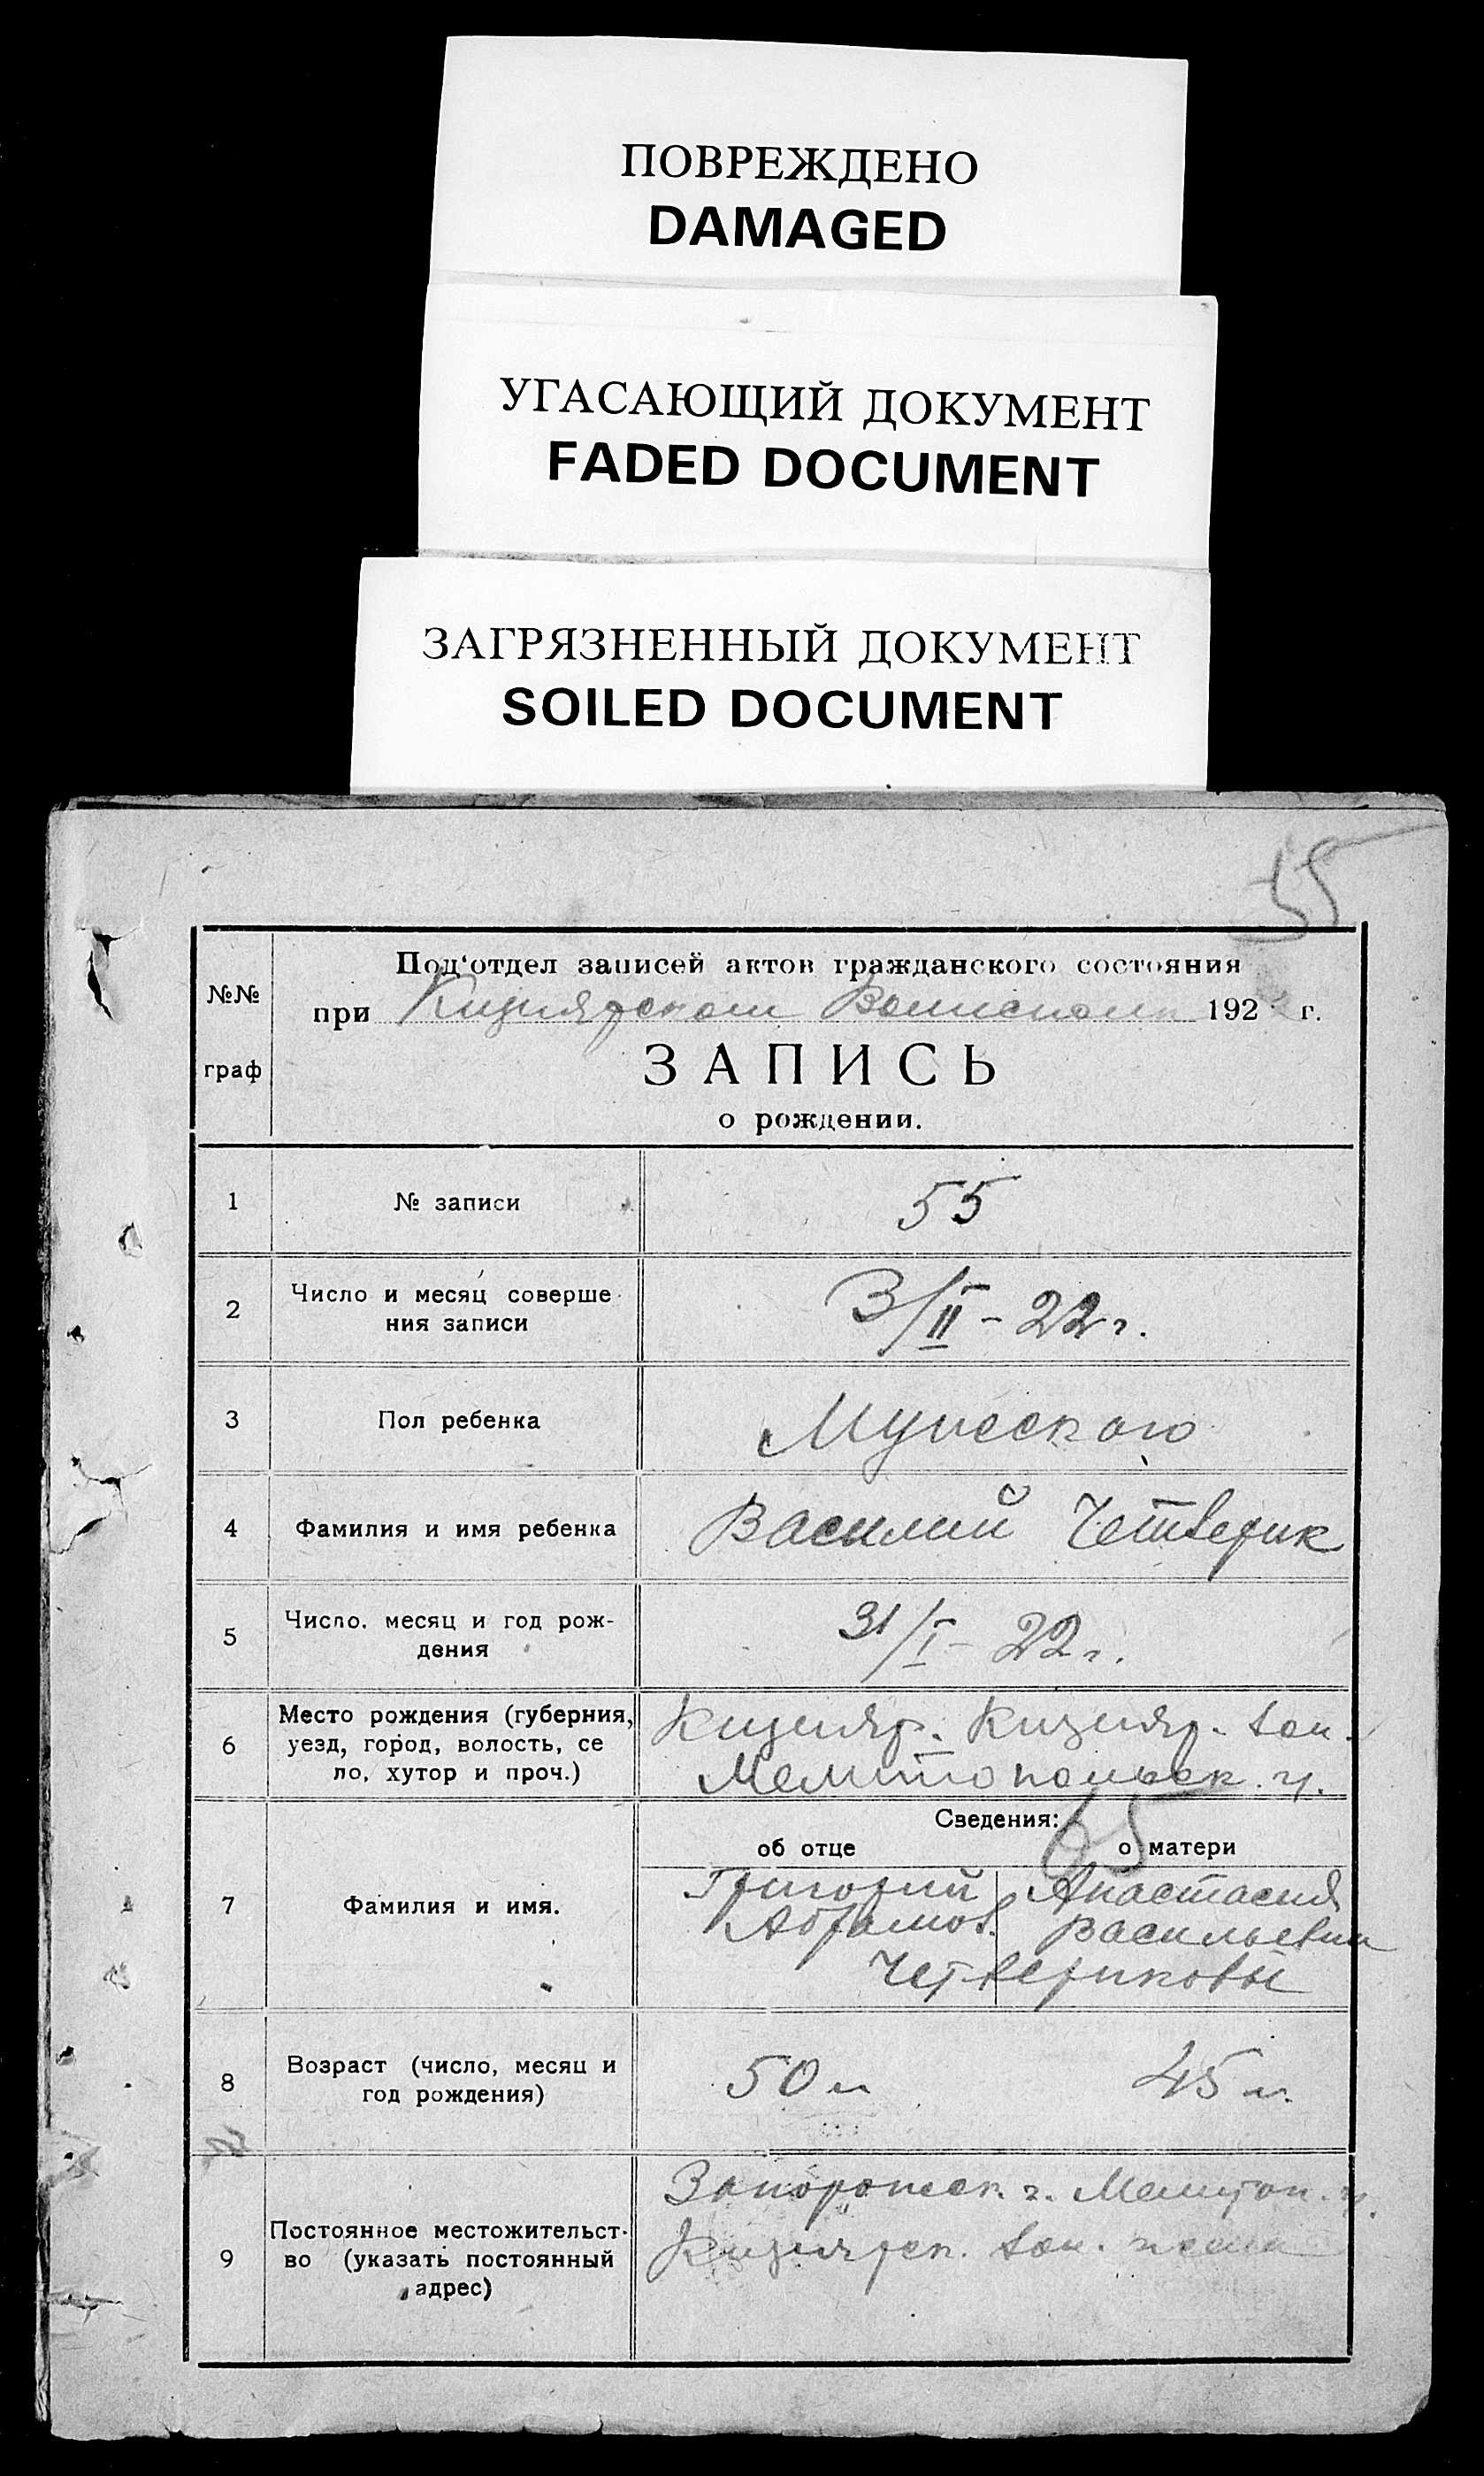 ПОВРЕЖДЕНО
DAMAGED
УГАСАЮЩИЙ ДОКУМЕНТ
FADED DOCUMENT
ЗАГРЯЗНЕННЫЙ ДОКУМЕНТ
SOILED DOCUMENT
55
№№
граф
Под‘отдел записей актов гражданского состояния
при Кизиярском Волиспоком 192 г.
ЗАПИСЬ
о рождении.
1 № записи 55
2 Число и месяц соверше
ния записи
3/II - 22 г.
3 Пол ребенка Мужского
4 Фамилия и имя ребенка Василий Четверик
5 Число. месяц и год рож-
дения
31/I - 22 г.
6 Место рождения (губерния,
уезд, город, волость, се
ло, хутор и проч.)
Кизияр. Кизияр. вол.
Мелитопольск. у.
Сведения: 65
об отце о матери
7 Фамилия и имя.
Григорий Анастасия
Абрамов. Васильевна
Четвериковы
8 Возраст (число, месяц и
год рождения)
50 л 45 л.
9 Постоянное местожительст-
во (указать постоянный
адрес)
Запорожск. г. Мелитоп. у.
Кизиярск. вол.